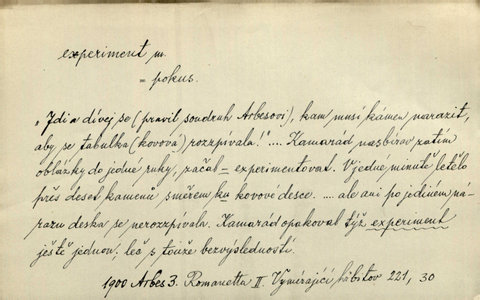 experiment m.
= pokus.
„Jdi a dívej se (pravil soudruh Arbesovi), kam musí kámen narazit,
aby se tabulka (kovová) rozzpívala!" .... Kamarád nasbírav zatím
oblázky do jedné ruky, začal = experimentovat. V jedné minutě letělo
přes deset kamenů směrem ku kovové desce. .... ale ani po jediném ná-
razu deska se nerozzpívala. Kamarád opakoval týž experiment
ještě jednou, leč s touže bezvýsledností.
1900 Arbes 3. Romanetta II. Vymírající hřbitov 221, 30